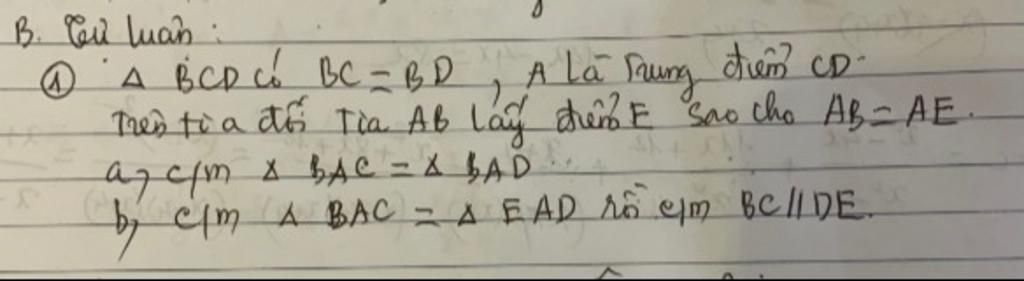 B. Tự luận :
① △ BCD có BC = BD , A là Trung điểm CD.
Trên tia đối Tia AB lấy điểm E sao cho AB = AE.
a, c/m △ BAC = △ BAD
b, c/m △ BAC = △ EAD rồi c/m BC // DE.